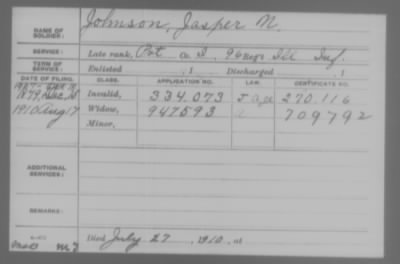 NAME OF SOLDIER: Johnson, Jasper N.
SERVICE: Late rank, Pvt Co. I, 96 Reg't Ill Inf.
TERM OF SERVICE: Enlisted , 1 Discharged , 1
DATE OF FILING. CLASS. APPLICATION NO. LAW. CERTIFICATE NO.
1879, Invalid, 334.073 270.116
1910 Aug 17 Widow, 947593 709792
Minor,
ADDITIONAL SERVICES:
REMARKS:
Died July 27, 1910, at